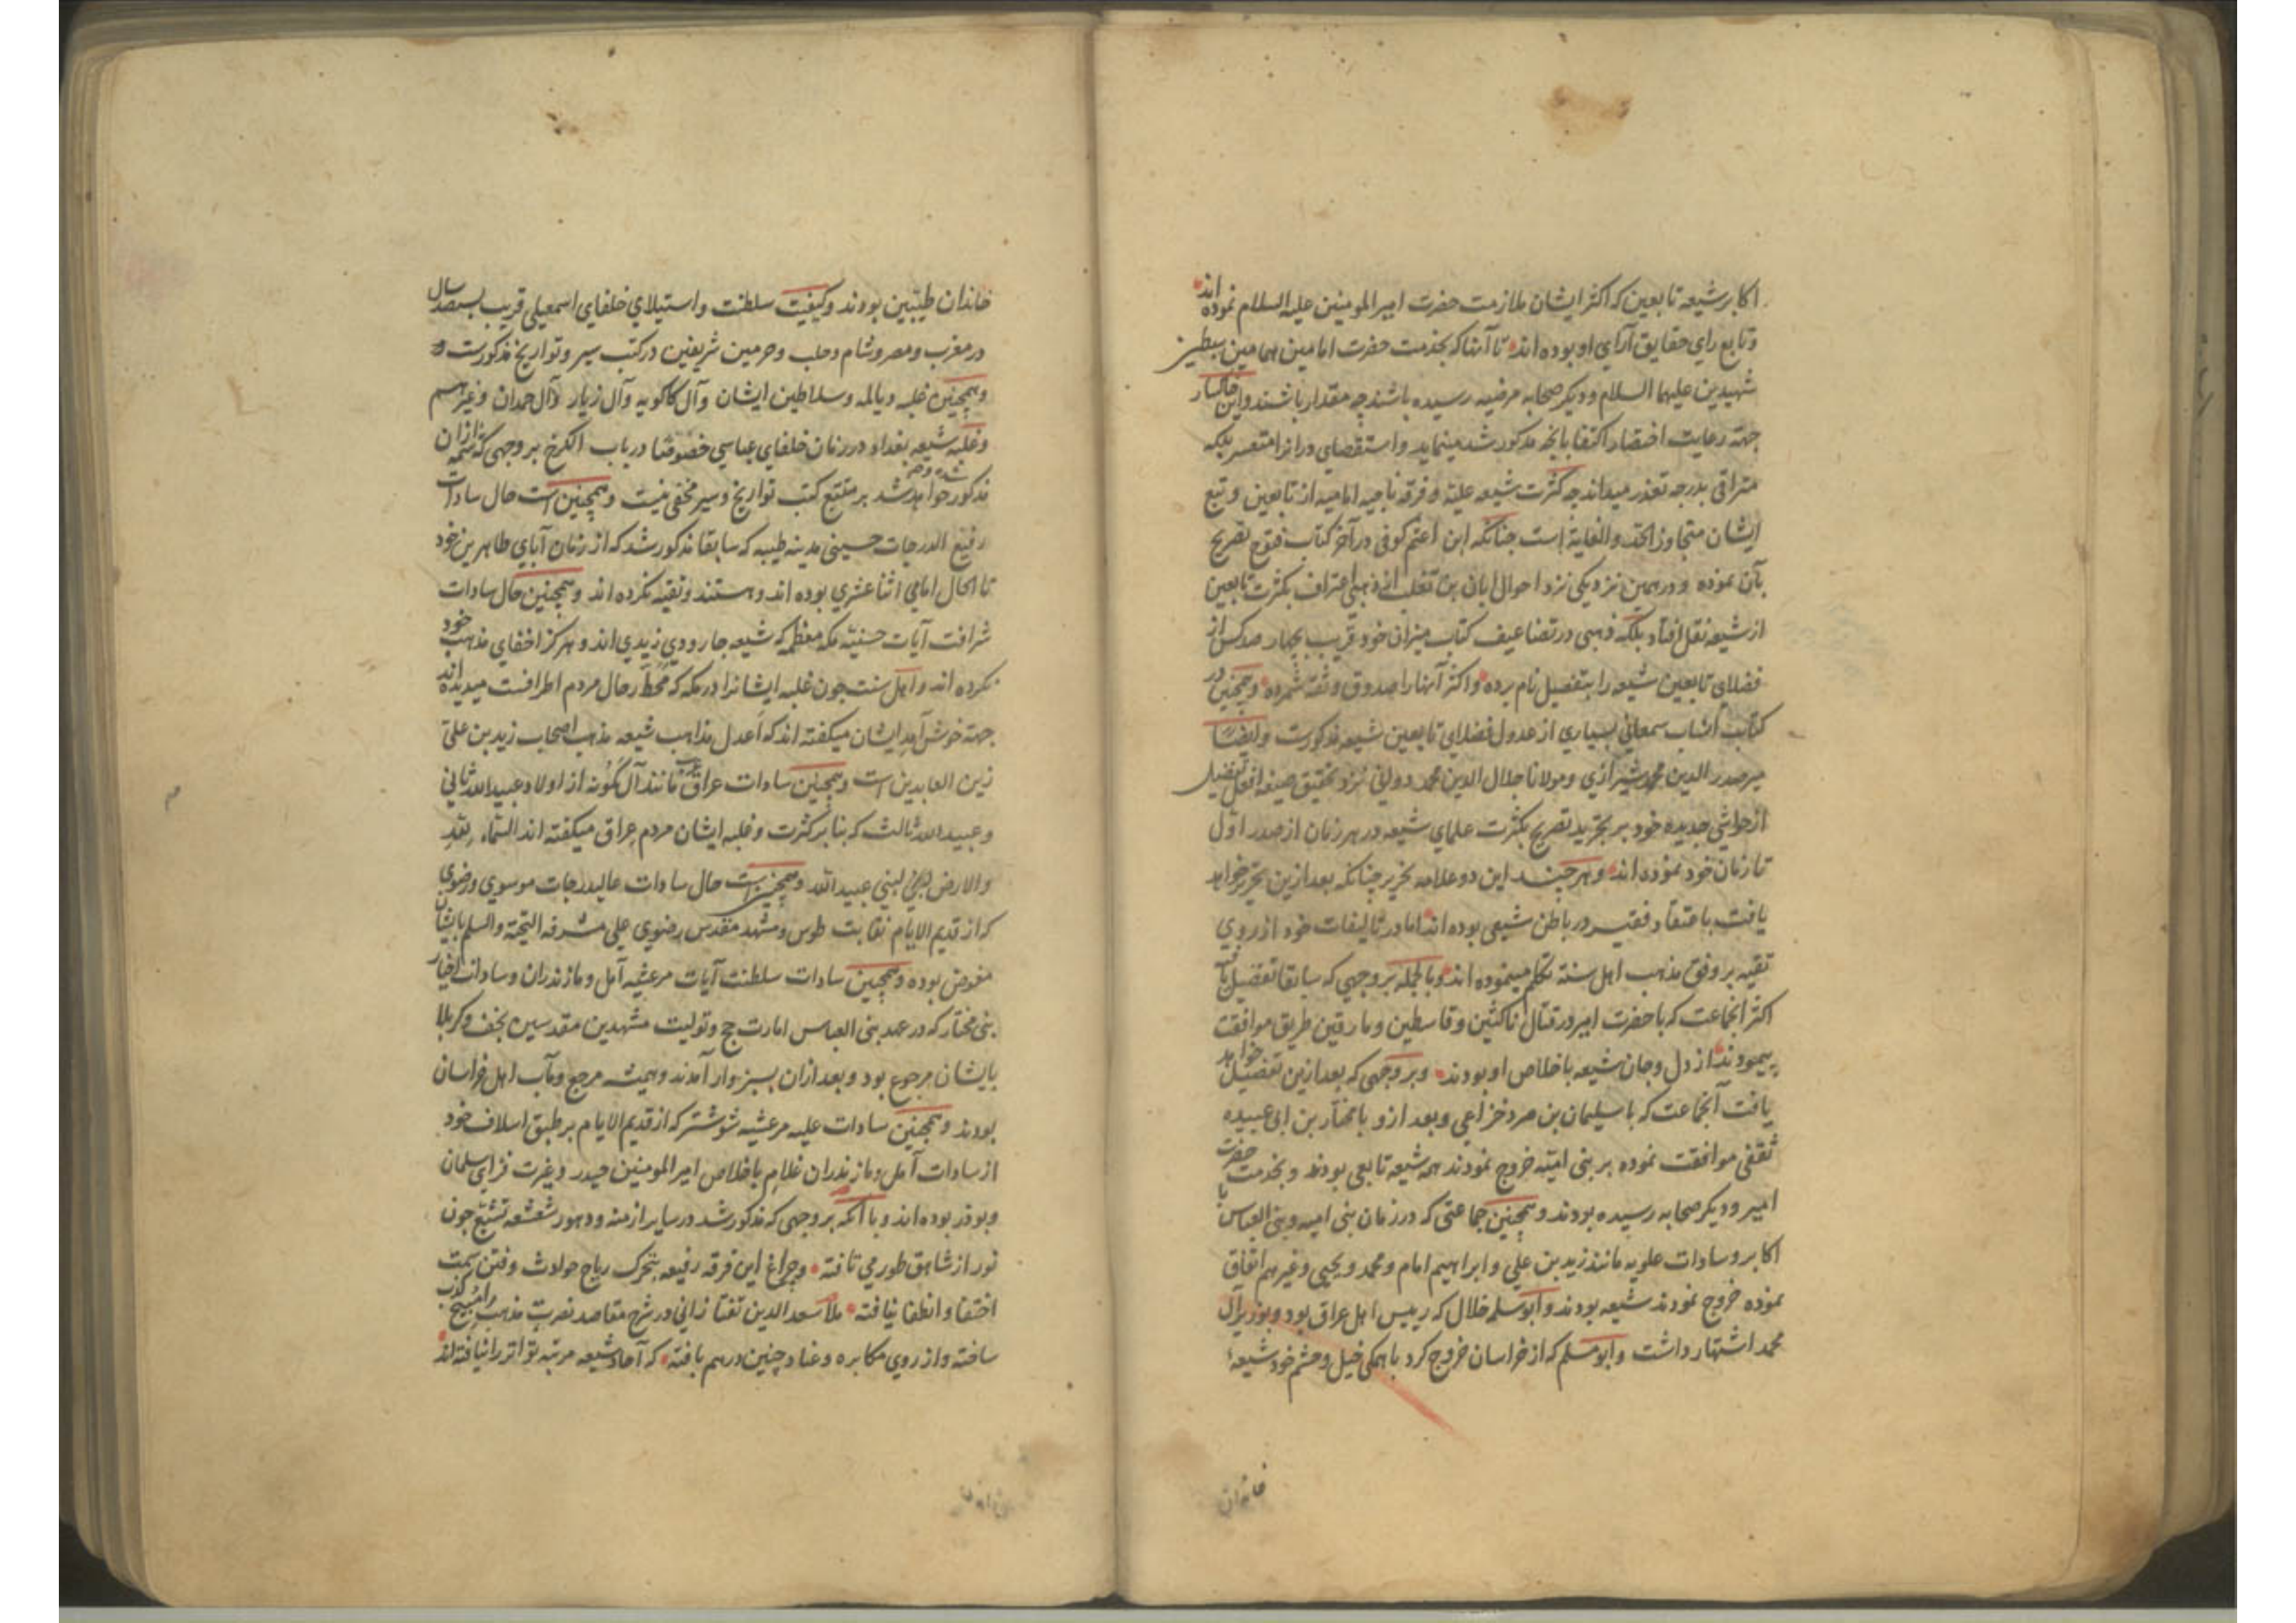 اکابر شیعه تابعین که اکثر ایشان ملازمت حضرت امیر المومنین علیه السلام نموده اند
و تابع رای حقایق آرای او بوده اند تا آنها که بخدمت حضرت امامین همامین سبطین
شهیدین علیهما السلام و دیکر صحابه مرضیه رسیده باشند چه مقدار باشند و این خاکسار
جهة رعایت اختصار اکتفا بانچه مذکور شد مینماید و استقصای در انرا متعسر بلکه
متراقی بدرجه تعذر میداند چه کثرت شیعه علیه و فرقه ناجیه امامیه از تابعین و تبع
ایشان متجاوز الحد والغایة است چنانکه ابن اعثم کوفی در آخر کتاب فتوح تصریح
بآن نموده و در همین نزدیکی نزد احوال ابان بن تغلب از ذهبی اعتراف بکثرت تابعین
از شیعه نقل افتاد بلکه ذهبی در تضاعیف کتاب میزان خود قریب بچهار صد کس از
فضلای تابعین شیعه را بتفصیل نام برده و اکثر آنها را صدوق و ثقه شمرده و همچنین در
کتاب انساب سمعانی بسیاری از عدول فضلای تابعین شیعه مذکورست و ایضا
میر صدر الدین محمد شیرازی و مولانا جلال الدین محمد دوانی نزد تحقیق صیغه افعل تفضیل
از حواشی جدیده خود بر تجرید تصریح بکثرت علمای شیعه در هر زمان از صدر اول
تا زمان خود نموده اند و هر چند این دو علامه نحریر چنانکه بعد ازین تحریر خواهد
یافت باعتقاد فقیر در باطن شیعی بوده اند اما در تالیفات خود از روی
تقیه بر وفق مذهب اهل سنة تکلم مینموده اند و بالجمله بر وجهی که سابقا تفصیل یافت
اکثر انجماعت که با حضرت امیر در قتال ناکثین و قاسطین و مارقین طریق موافقت
پیمودند از دل و جان شیعه با خلاص او بودند و بر وجهی که بعد ازین تفصیل خواهد
یافت آنجماعت که با سلیمان بن صرد خزاعی و بعد ازو با مختار بن ابی عبیده
ثقفی موافقت نموده بر بنی امیه خروج نمودند همه شیعه تابعی بودند و بخدمت حضرت
امیر و دیکر صحابه رسیده بودند و همچنین جماعتی که در زمان بنی امیه و بنی العباس با
اکابر و سادات علویه مانند زید بن علی و ابراهیم امام و محمد و یحیی و غیرهم اتفاق
نموده خروج نمودند شیعه بودند و ابو سلمه خلال که رییس اهل عراق بود و بوزیر ال
محمد اشتهار داشت و ابو مسلم که از خراسان خروج کرد با همکی خیل و حشم خود شیعهٔ
خاندان
خاندان طیبین بودند و کیفیت سلطنت و استیلای خلفای اسمعیلی قریب بسیصد سال
در مغرب و مصر و شام و حلب و حرمین شریفین در کتب سیر و تواریخ مذکورست
و همچنین غلبه دیالمه و سلاطین ایشان و آل کاکویه و آل زیار و آل حمدان و غیرهم
و غلبه شیعه بغداد در زمان خلفای عباسی خصوصا در باب الکرخ بر وجهی که شمه ازان
مذکور شده و خواهد شد بر متتبع کتب تواریخ و سیر مخفی نیست و همچنین است حال سادات
رفیع الدرجات حسینی مدینه طیبه که سابقا مذکور شد که از زمان آبای طاهرین خود
تا الحال امامی اثنا عشری بوده اند و هستند و تقیه نکرده اند و همچنین حال سادات
شرافت آیات حسنیه مکه معظمه که شیعه جارودی زیدی اند و هرکز اخفای مذهب خود
نکرده اند و اهل سنت چون غلبه ایشانرا در مکه که محط رحال مردم اطرافست میدیده اند
جهة خوش آمد ایشان میکفته اند که اعدل مذاهب شیعه مذهب اصحاب زید بن علی
زین العابدین است و همچنین سادات عراق عرب مانند آل مکونه از اولاد عبید الله ثانی
و عبید الله ثالث که بنا بر کثرت و غلبه ایشان مردم عراق میکفته اند السماء لله
والارض لبنی عبید الله و همچنین است حال سادات عالیدرجات موسوی و رضوی
که از قدیم الایام نقابت طوس و مشهد مقدس رضوی علی مشرفه التحیة والسلم بایشان
مفوض بوده و همچنین سادات سلطنت آیات مرعشیه آمل و مازندران و سادات اخیار
بنی مختار که در عهد بنی العباس امارت حج و تولیت مشهدین مقدسین نجف و کربلا
بایشان مرجوع بود و بعد ازان بسبزوار آمدند و همیشه مرجع و مآب اهل خراسان
بودند و همچنین سادات علیه مرعشیه شوشتر که از قدیم الایام بر طبق اسلاف خود
از سادات آمل و مازندران غلام با خلاص امیر المومنین حیدر و غیرت فزای سلمان
و بوذر بوده اند و با آنکه بر وجهی که مذکور شد در سایر ازمنه و دهور شعشعه تشیع چون
نور از شاهق طور می تافته و چراغ این فرقه رفیعه بتحرک ریاح حوادث و فتن سمت
اختفا و انطفا نیافته ملا سعد الدین تفتازانی در شرح مقاصد نصرت مذهب را کذب
ساخته و از روی مکابره و عناد چنین درهم بافته که آحاد شیعه مرتبه تواتر را نیافته اند